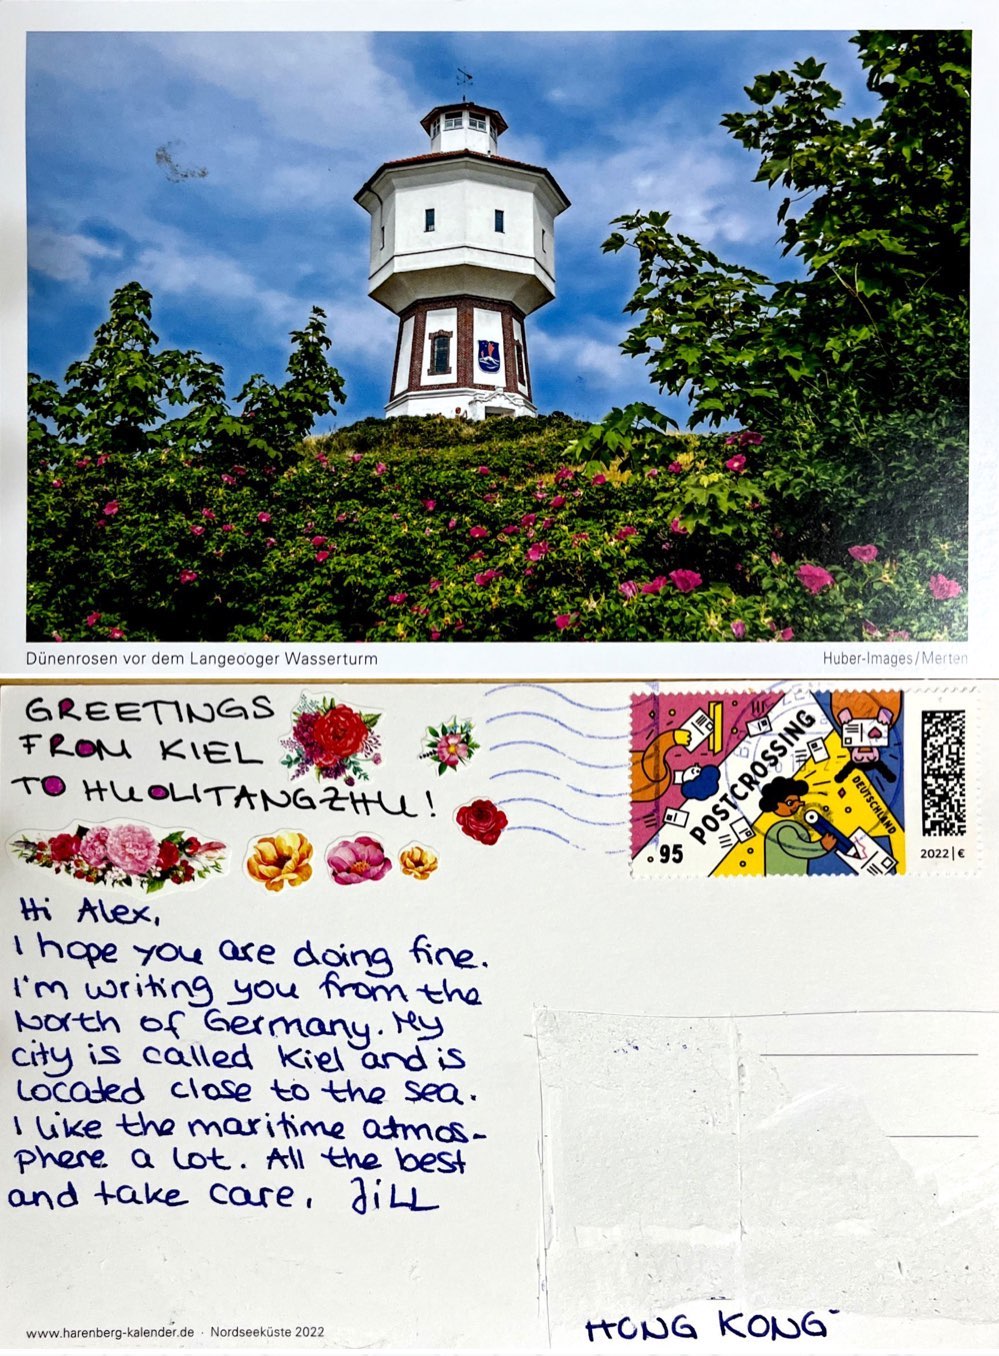 Dünenrosen vor dem Langeooger Wasserturm
Huber-Images/Merten
GREETINGS
FROM KIEL
TO HUOLITANGZHU!
POSTCROSSING
DEUTSCHLAND
.95
2022 | €
Hi Alex,
I hope you are doing fine.
I'm writing you from the
North of Germany. My
city is called Kiel and is
located close to the sea.
I like the maritime atmos-
phere a lot. All the best
and take care. Jill
HONG KONG
www.harenberg-kalender.de · Nordseeküste 2022